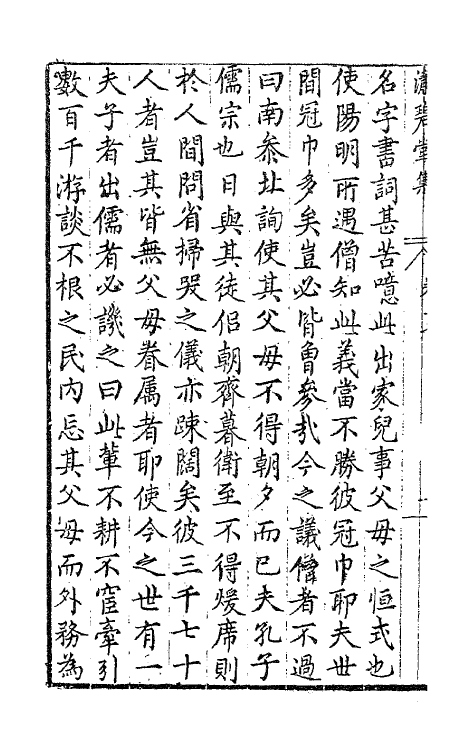 瀟碧堂集
名字書詞甚苦噫此出家兒事父毋之恒式也
使陽明所遇僧知此義當不勝彼冠巾耶夫世
間冠巾多矣豈必皆魯參哉今之議僧者不過
曰南叅北詢使其父毋不得朝夕而已夫孔子
儒宗也日與其徒侶朝齊暮衛至不得煖席則
於人間問省掃哭之儀亦踈闊矣彼三千七十
人者豈其皆無父毋眷属者耶使今之世有一
夫子者出儒者必譏之曰此輩不耕不宦牽引
數百千游談不根之民内忘其父毋而外務為